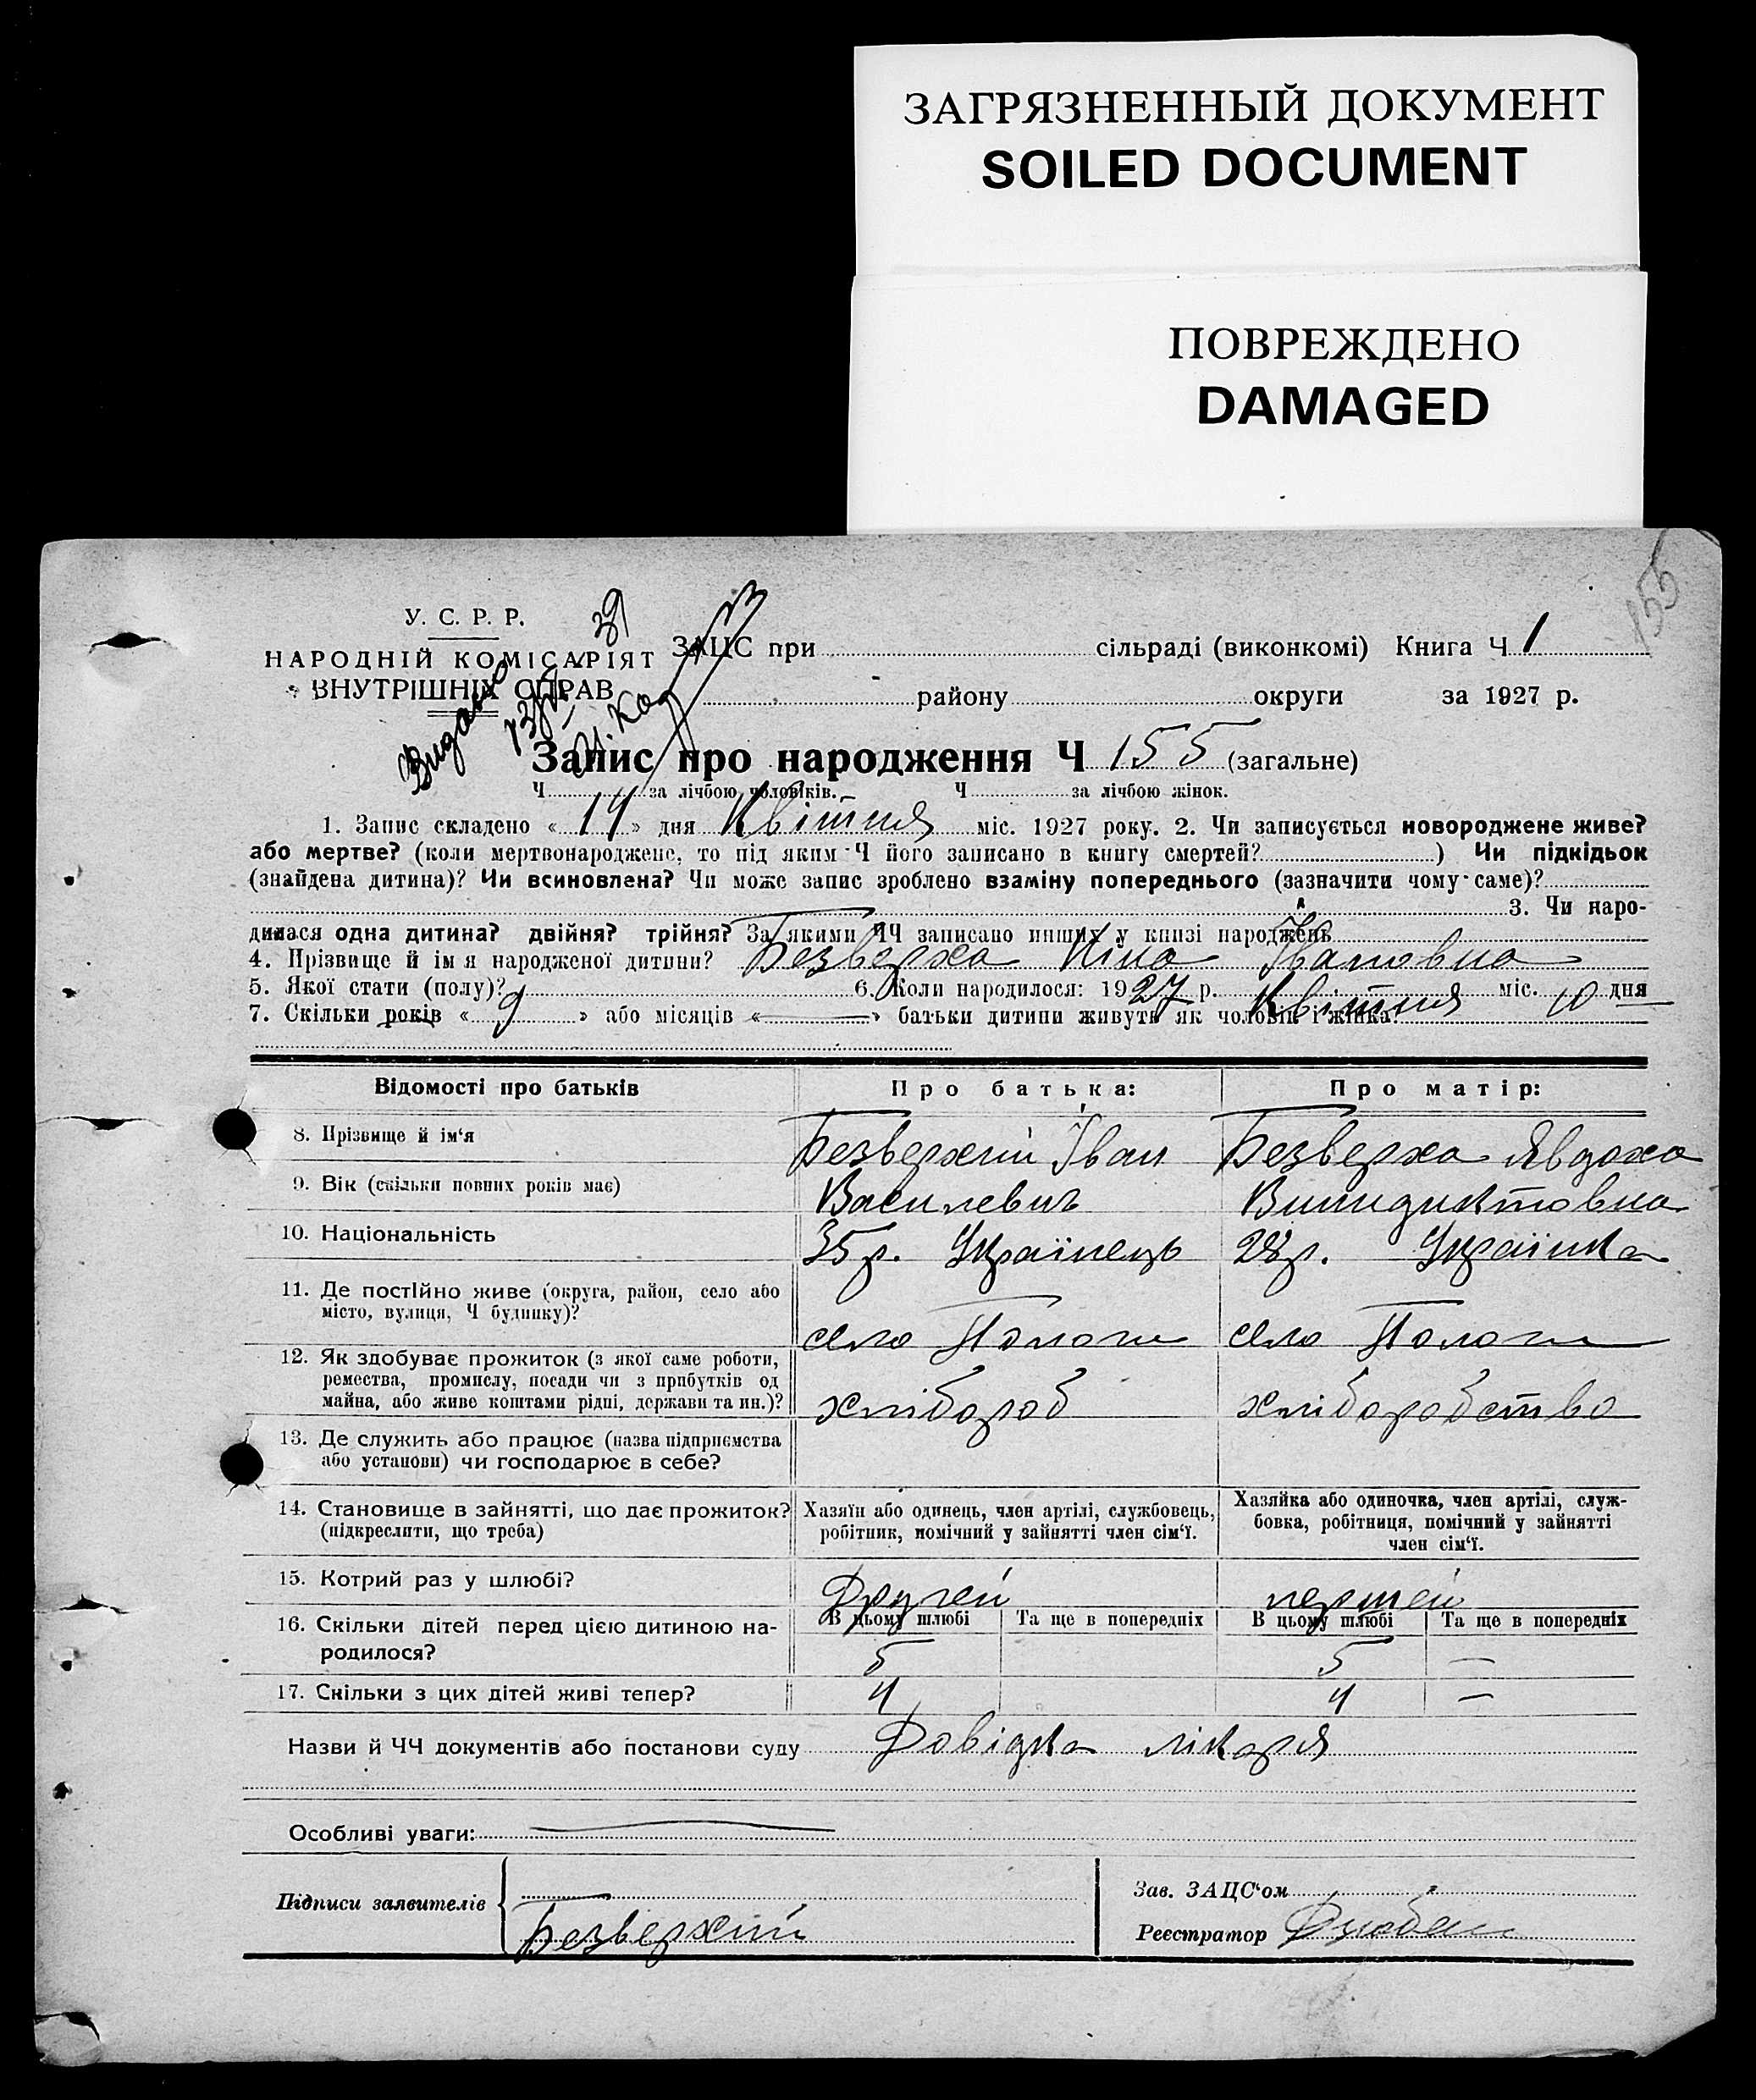 ЗАГРЯЗНЕННЫЙ ДОКУМЕНТ
SOILED DOCUMENT
ПОВРЕЖДЕНО
DAMAGED
155
У. С. Р. Р.
НАРОДНІЙ КОМІСАРІЯТ
ВНУТРІШНІХ СПРАВ
Видано
39
ЗАЦС при сільраді (виконкомі) Книга Ч 1
району округи за 1927 р.
Запис про народження Ч 155 (загальне)
Ч за лічбою чоловіків. Ч за лічбою жінок.
1. Запис складено « 14 » дня Квітня міс. 1927 року. 2. Чи записується новороджене живе?
або мертве? (коли мертвонароджене, то під яким Ч його записано в книгу смертей? ) Чи підкідьок
(знайдена дитина)? Чи всиновлена? Чи може запис зроблено взаміну попереднього (зазначити чому саме)?
3. Чи наро-
дилася одна дитина? двійня? трійня? За якими ЧЧ записано инших у книзі народжень
4. Прізвище й ім я народженої дитини? Безверха Ніна Івановна
5. Якої стати (полу)? 6. Коли народилося: 1927 р. Квітня міс. 10 дня
7. Скільки років « 9 » або місяців « — » батьки дитини живуть як чоловік і жінка?
Відомості про батьків Про батька: Про матір:
8. Прізвище й ім‘я Безверхий Іван Безверха Явдоха
9. Вік (скільки повних років має) Василевич Винидиктовна
10. Національність 35 р. Українець 28 р. Українка
11. Де постійно живе (округа, район, село або
місто, вулиця, Ч будинку)? село Пологи село Пологи
12. Як здобуває прожиток (з якої саме роботи,
ремества, промислу, посади чи з прибутків од
майна, або живе коштами рідні, держави та ин.)? хлібороб хліборобство
13. Де служить або працює (назва підприємства
або установи) чи господарює в себе?
14. Становище в зайнятті, що дає прожиток?
(підкреслити, що треба)
Хазяїн або одинець, член артілі, службовець,
робітник, помічний у зайнятті член сім‘ї.
Хазяйка або одиночка, член артілі, служ-
бовка, робітниця, помічний у зайнятті
член сім‘ї.
15. Котрий раз у шлюбі? Другей першей
16. Скільки дітей перед цією дитиною на-
родилося?
В цьому шлюбі Та ще в попередніх В цьому шлюбі Та ще в попередніх
5 5 —
17. Скільки з цих дітей живі тепер? 4 4 —
Назви й ЧЧ документів або постанови суду Довідка лікаря
Особливі уваги:
Підписи заявителів Безверхий
Зав. ЗАЦС‘ом
Реєстратор